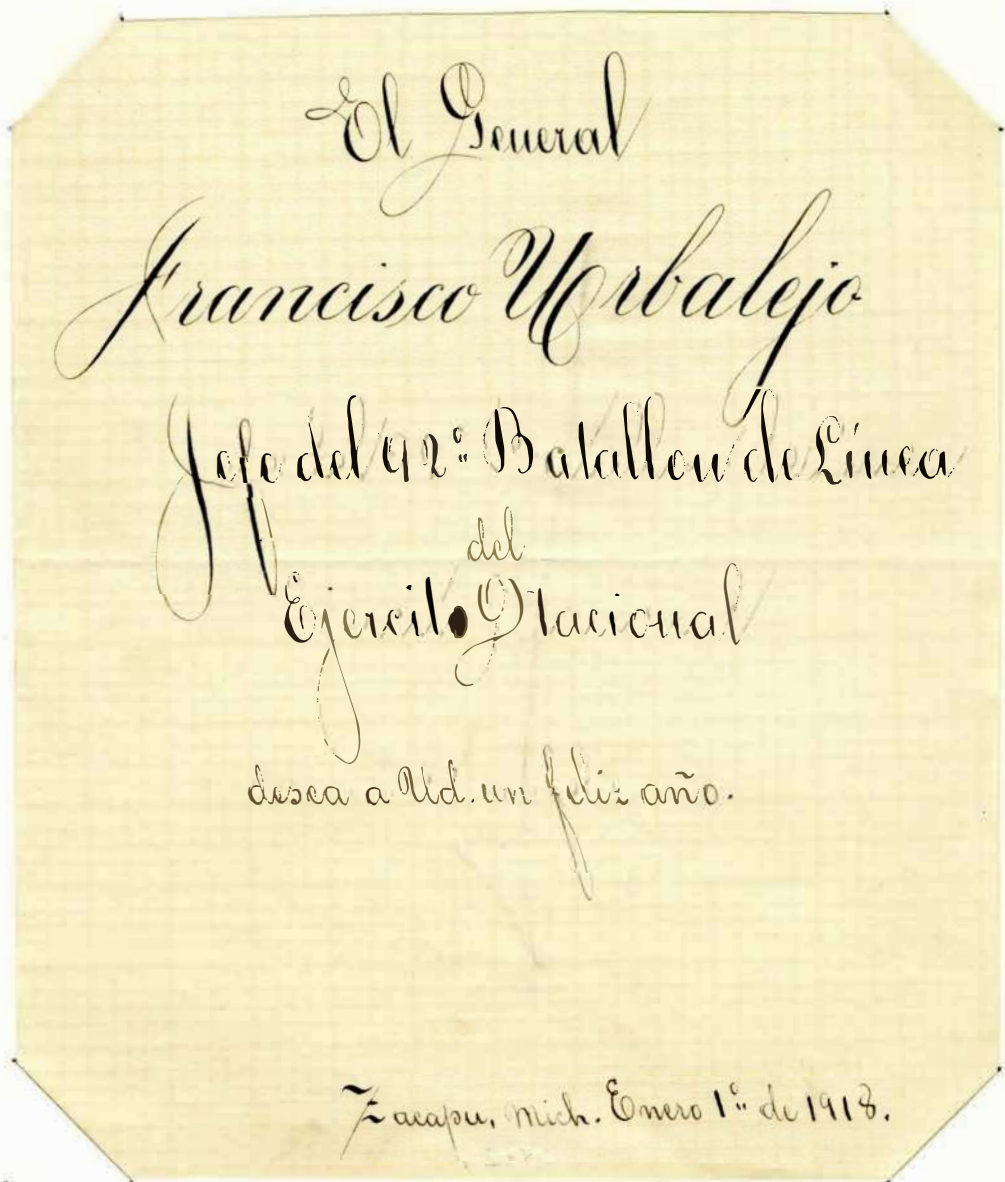 El General
Francisco Urbalejo
Jefe del 42º Batallon de Línea
del
Ejercito Nacional
desea a Ud. un feliz año.
Zacapu, Mich. Enero 1º de 1918.